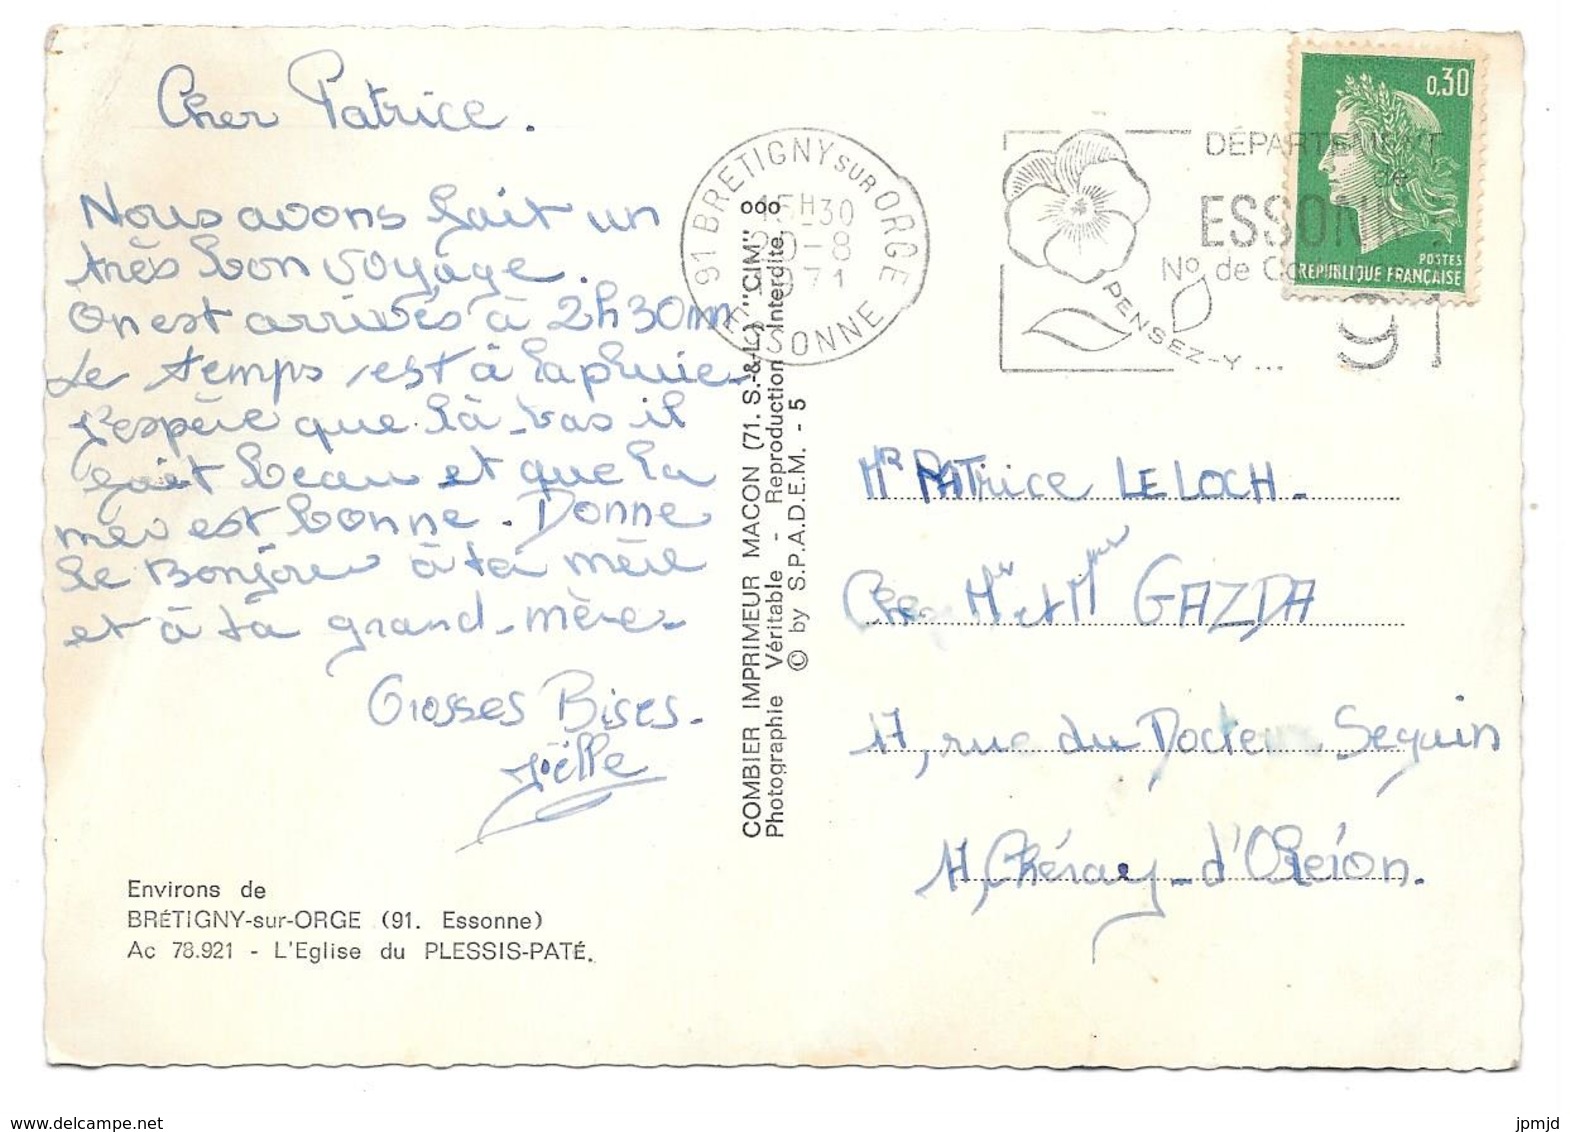 Cher Patrice.
Nous avons fait un
très bon voyage.
On est arrivés à 2h30mn
Le temps est à la pluie
J'espère que là-bas il
fait beau et que la
mer est bonne. Donne
le Bonjour à ta mère
et à ta grand-mère.
Grosses Bises.
Joëlle
Environs de
BRÉTIGNY-sur-ORGE (91. Essonne)
Ac 78.921 - L'Eglise du PLESSIS-PATÉ.
COMBIER IMPRIMEUR MACON (71. S.-&-L.) "CIM" ooo
Photographie Véritable - Reproduction Interdite.
© by S.P.A.D.E.M. - 5
91 BRETIGNY SUR ORGE
15H30
20-8
1971
ESSONNE
DÉPARTEMENT
de
ESSONNE
No de Code
91
PENSEZ-Y...
0,30
POSTES
REPUBLIQUE FRANÇAISE
Mr PATrice LE LOCH.
Chez Mr et Mme GAZDA
17, rue du Docteur Seguin
17, Chéray-d'Oléron.
www.delcampe.net
jpmjd